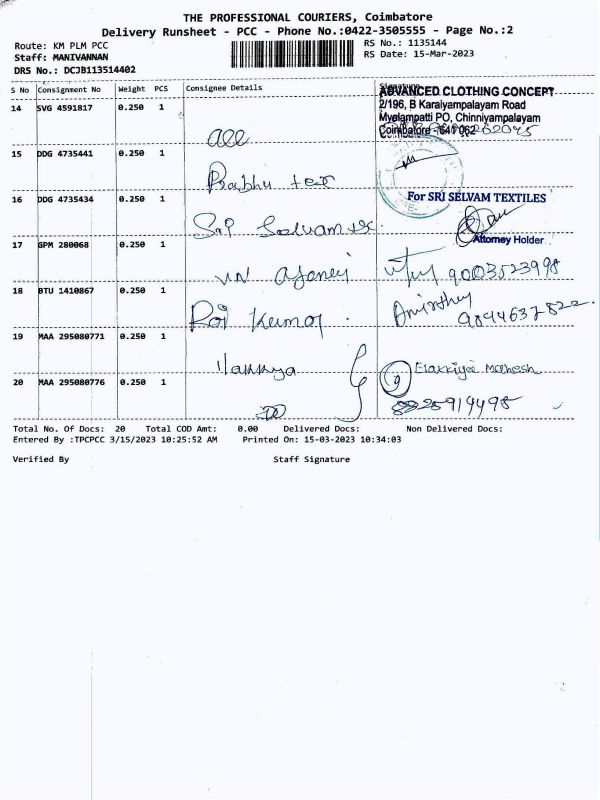 THE PROFESSIONAL COURIERS, Coimbatore
Delivery Runsheet - PCC - Phone No.:0422-3505555 - Page No.:2
Route: KM PLM PCC
RS No.: 1135144
Staff: MANIVANNAN
RS Date: 15-Mar-2023
DRS No.: DCJB113514402
S No Consignment No Weight PCS Consignee Details Signature
14 SVG 4591817 0.250 1
acc
ADVANCED CLOTHING CONCEPT
2/196, B Karaiyampalayam Road
Myelampatti PO, Chinniyampalayam
Coimbatore - 641 062
15 DDG 4735441 0.250 1
Prabhu tex
16 DDG 4735434 0.250 1
Sri Selvam tex
For SRI SELVAM TEXTILES
Attorney Holder
17 GPM 280068 0.250 1
VN
9003523998
18 BTU 1410867 0.250 1
Raj Kumar
9894637822
19 MAA 295080771 0.250 1
Ilakkya
Elakkiya Mahesh
20 MAA 295080776 0.250 1
8925919498
Total No. Of Docs: 20 Total COD Amt: 0.00 Delivered Docs: Non Delivered Docs:
Entered By :TPCPCC 3/15/2023 10:25:52 AM Printed On: 15-03-2023 10:34:03
Verified By Staff Signature